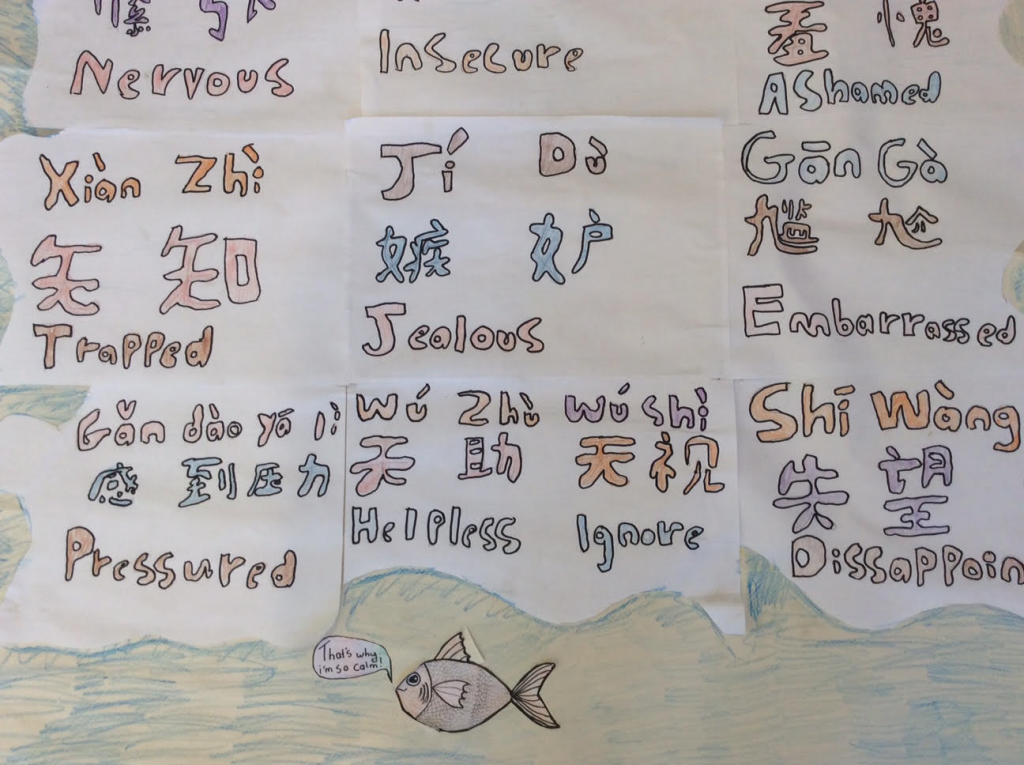 羞 愧
Nervous Insecure AShamed
Xiàn Zhì Jí Dù Gān Gà
知 嫉 妒 尴 尬
Trapped Jealous Embarrassed
Gǎn dào yā lì Wú Zhù Wú shì Shī Wàng
感 到 压 力 无 助 无 视 失 望
Pressured Helpless Ignore Dissappoin
That's why
i'm so calm!